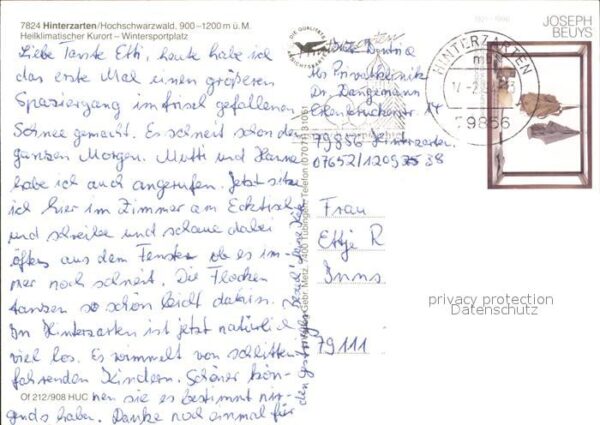 7824 Hinterzarten/Hochschwarzwald, 900–1200 m ü. M.
Heilklimatischer Kurort – Wintersportplatz
Liebe Tante Etti, heute habe ich
das erste Mal einen größeren
Spaziergang im frisch gefallenen
Schnee gemacht. Es schneit schon den
ganzen Morgen. Mutti und Hanne
habe ich auch angerufen. Jetzt sitze
ich hier im Zimmer am Ecktisch
und schreibe und schaue dabei
öfters aus dem Fenster ob es im-
mer noch schneit. Die Flocken
tanzen so schön leicht dahin.
In Hinterzarten ist jetzt natürlich
viel los. Es wimmelt von schlitten-
fahrenden Kindern. Schöner kön-
nen sie es bestimmt nir-
gends haben. Danke noch einmal für
den gestrigen
Of 212/908 HUC
DIE QUALITÄTS
ANSICHTSKARTE
Gebr. Metz, 7400 Tübingen, Tel. (07071) 31051
Privatklinik
Dr.
79856 Hinterzarten
07652/1209
38
HINTERZARTEN
79856
JOSEPH
BEUYS
Frau
R
79111
privacy protection
Datenschutz